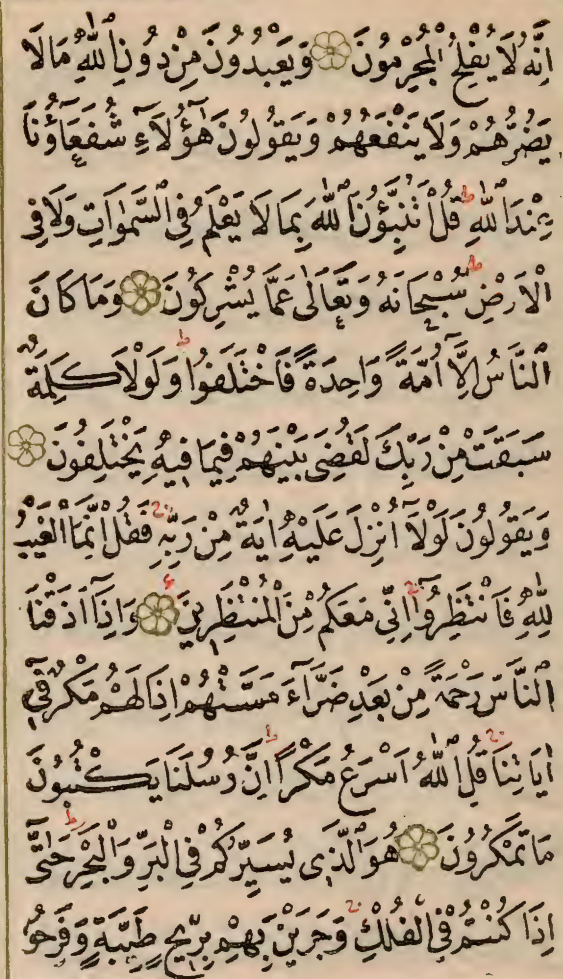 اِنَّهُ لَا يُفْلِحُ الْمُجْرِمُونَ وَيَعْبُدُونَ مِنْ دُونِ اللّٰهِ مَا لَا
يَضُرُّهُمْ وَلَا يَنْفَعُهُمْ وَيَقُولُونَ هٰٓؤُلَآءِ شُفَعَآؤُنَا
عِنْدَ اللّٰهِ ط قُلْ اَتُنَبِّؤُنَ اللّٰهَ بِمَا لَا يَعْلَمُ فِي السَّمٰوَاتِ وَلَا فِي
الْاَرْضِ ط سُبْحَانَهُ وَتَعَالٰى عَمَّا يُشْرِكُونَ وَمَا كَانَ
النَّاسُ اِلَّآ اُمَّةً وَاحِدَةً فَاخْتَلَفُوا ط وَلَوْلَا كَلِمَةٌ
سَبَقَتْ مِنْ رَبِّكَ لَقُضِيَ بَيْنَهُمْ فِيمَا فِيهِ يَخْتَلِفُونَ
وَيَقُولُونَ لَوْلَآ اُنْزِلَ عَلَيْهِ اٰيَةٌ مِنْ رَبِّهِ فَقُلْ اِنَّمَا الْغَيْبُ
لِلّٰهِ فَانْتَظِرُوا اِنِّي مَعَكُمْ مِنَ الْمُنْتَظِرِينَ وَاِذَآ اَذَقْنَا
النَّاسَ رَحْمَةً مِنْ بَعْدِ ضَرَّآءَ مَسَّتْهُمْ اِذَا لَهُمْ مَكْرٌ فِيٓ
اٰيَاتِنَا قُلِ اللّٰهُ اَسْرَعُ مَكْرًا ط اِنَّ رُسُلَنَا يَكْتُبُونَ
مَا تَمْكُرُونَ هُوَ الَّذِي يُسَيِّرُكُمْ فِي الْبَرِّ وَالْبَحْرِ ط حَتّٰىٓ
اِذَا كُنْتُمْ فِي الْفُلْكِ وَجَرَيْنَ بِهِمْ بِرِيحٍ طَيِّبَةٍ وَفَرِحُو